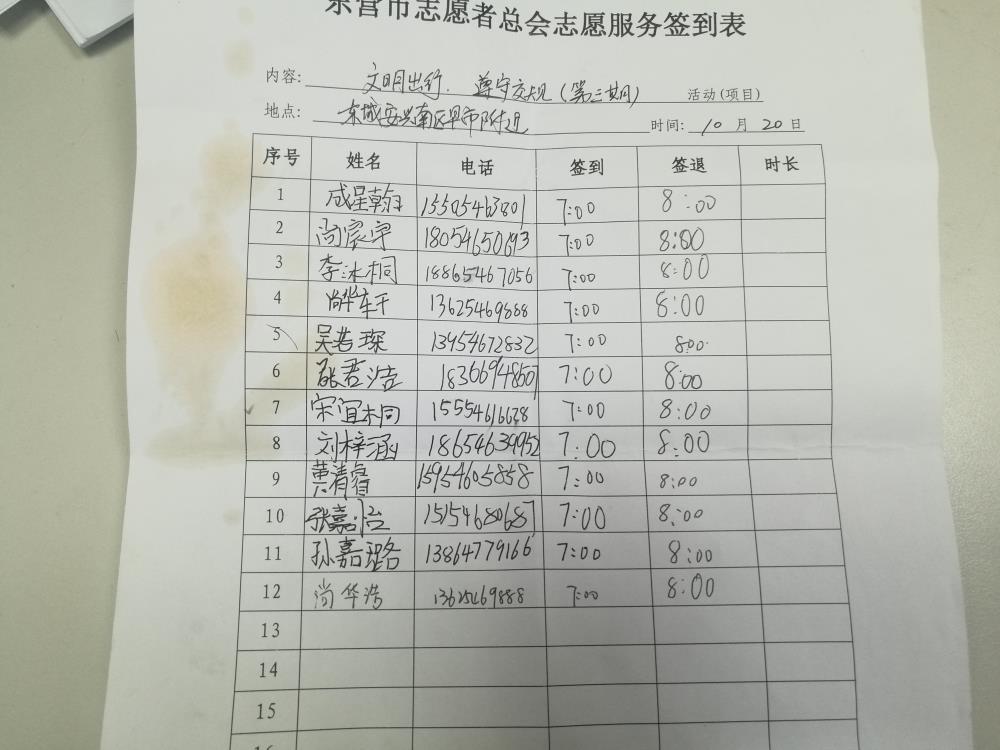 东营市志愿者总会志愿服务签到表
内容: 文明出行. 遵守交规(第三期) 活动(项目)
地点: 东城安兴南区早市附近 时间: 10 月 20 日
序号 姓名 电话 签到 签退 时长
1 成星翰 15505463801 7:00 8:00
2 尚宸宇 18054650693 7:00 8:00
3 李沐桐 18865467056 7:00 8:00
4 尚华轩 13625469888 7:00 8:00
5 吴若琛 13954672832 7:00 8:00
6 张君浩 18366948507 7:00 8:00
7 宋宜桐 15554616628 7:00 8:00
8 刘梓涵 18654639952 7:00 8:00
9 黄清睿 15954605858 7:00 8:00
10 张嘉怡 15154680687 7:00 8:00
11 孙嘉璐 13864779166 7:00 8:00
12 尚华浩 13625469888 7:00 8:00
13
14
15